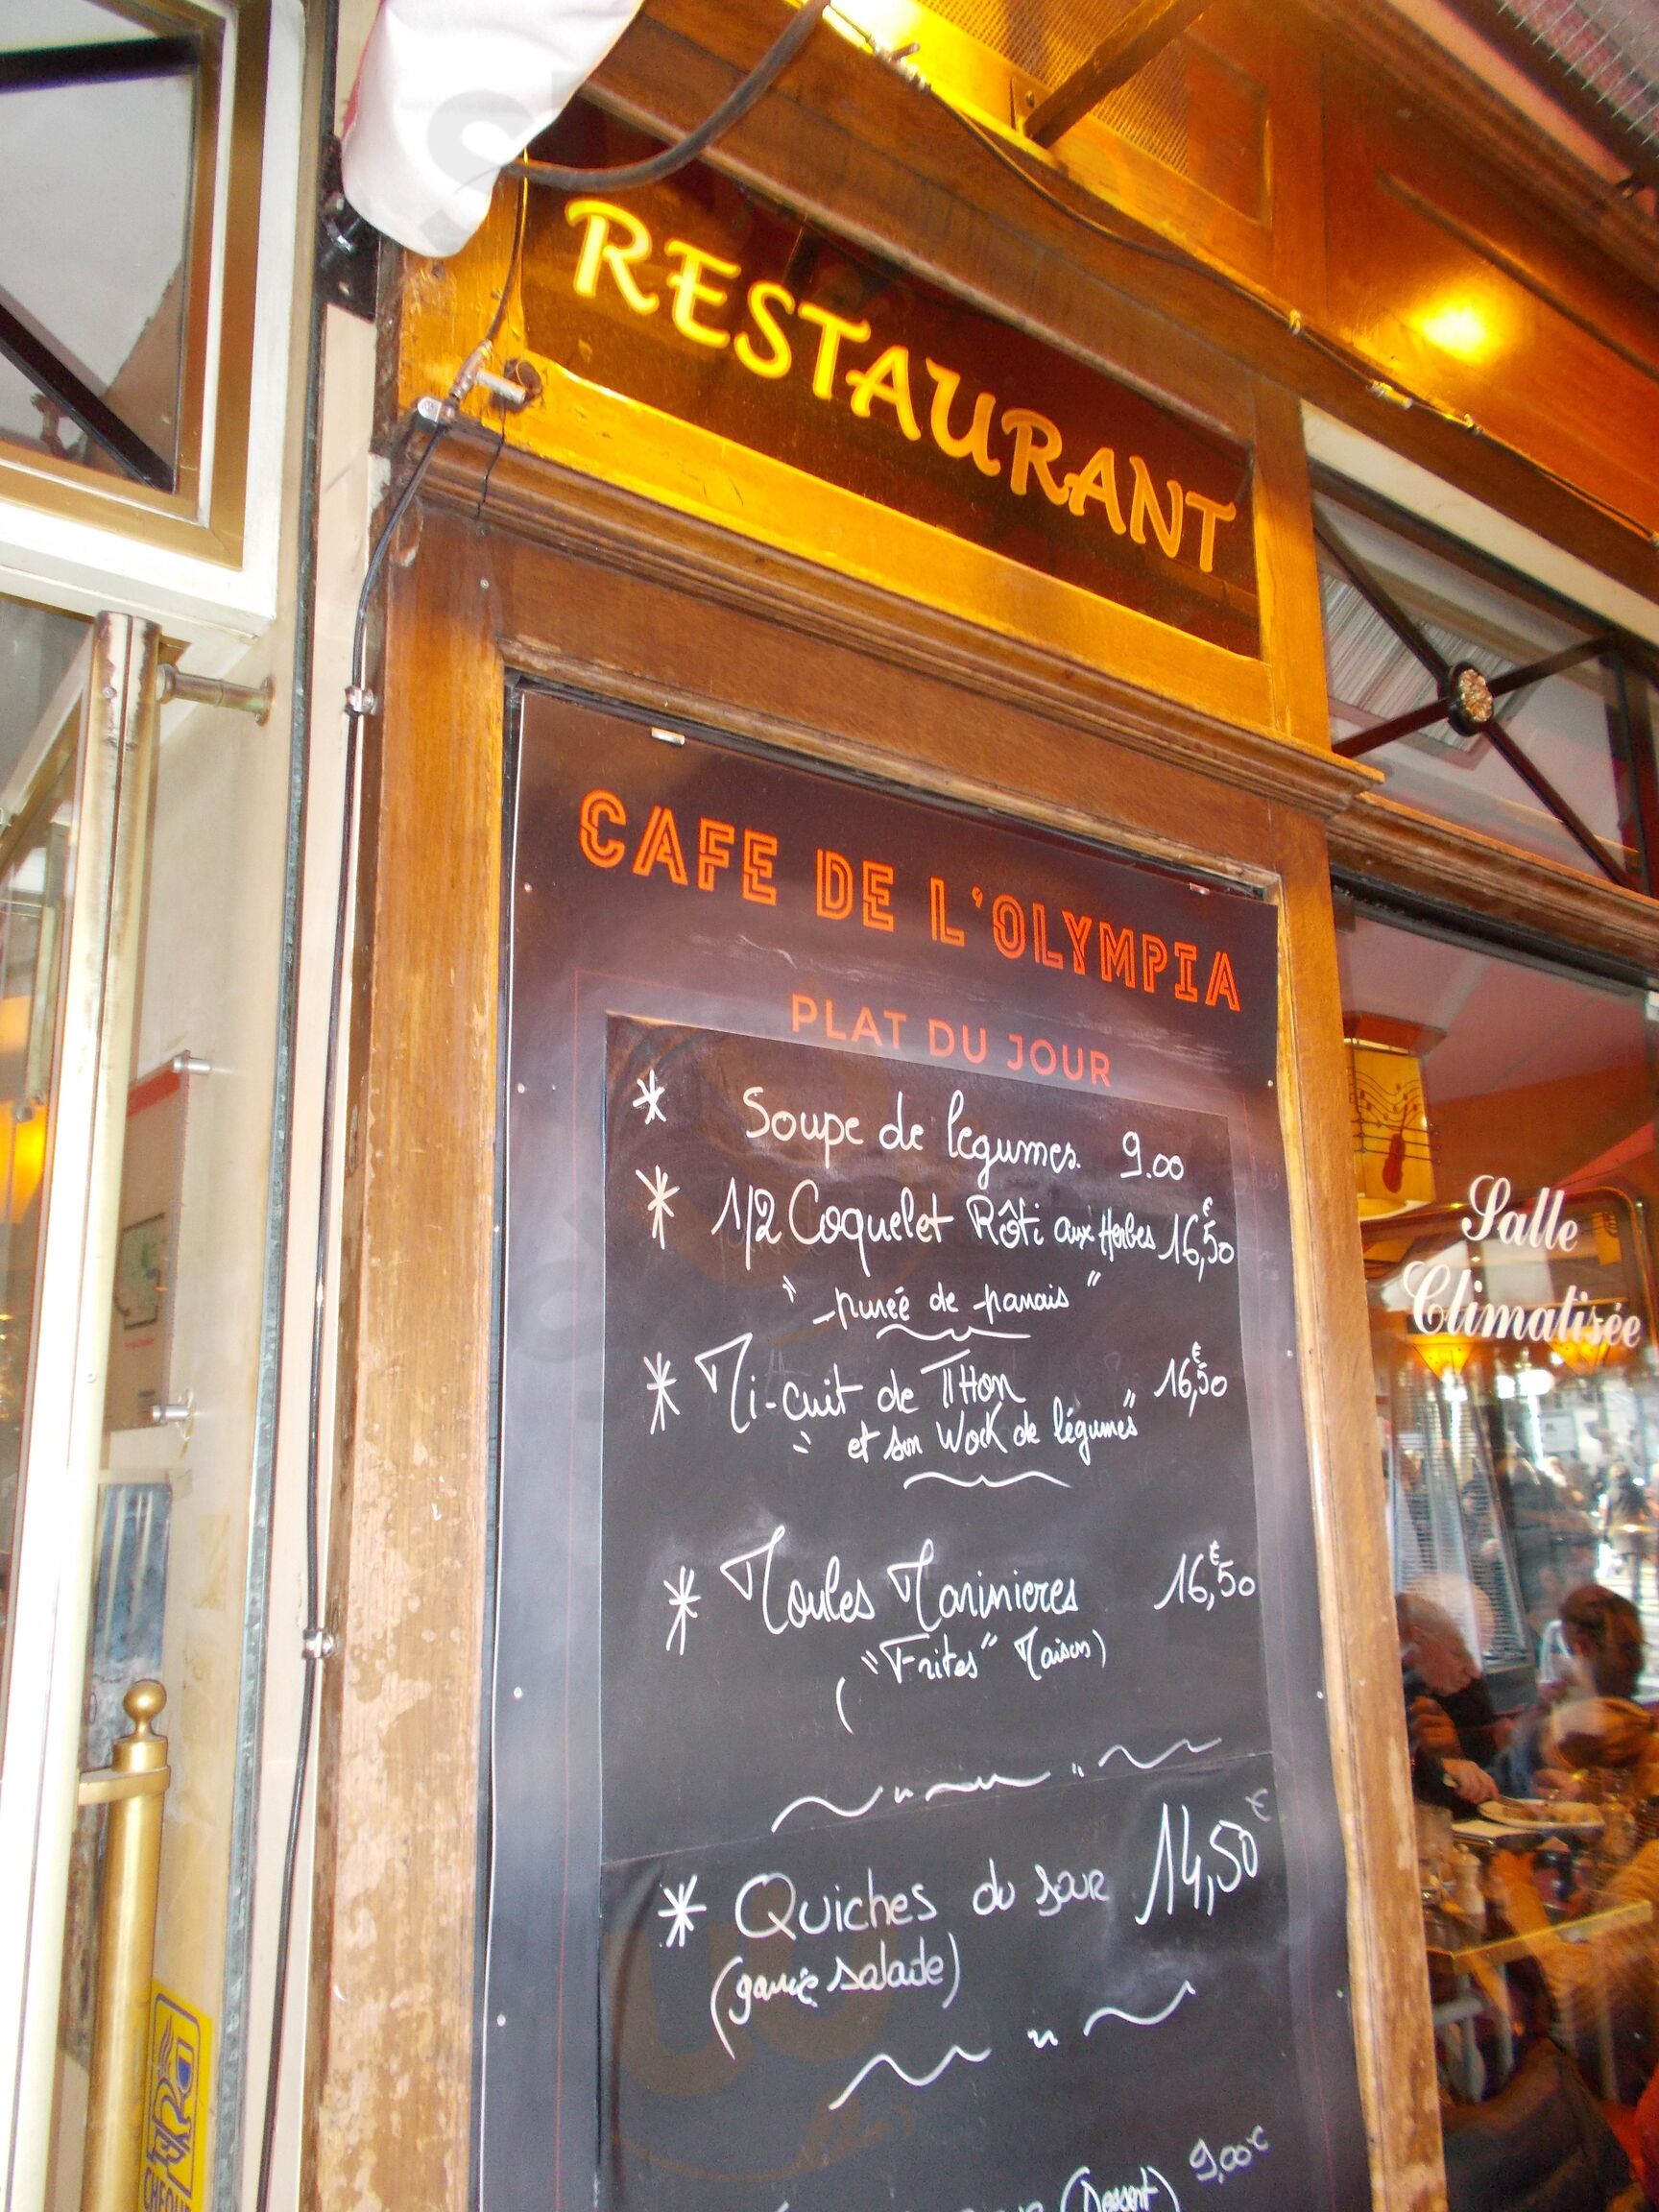 RESTAURANT
CAFE DE L'OLYMPIA
PLAT DU JOUR
* Soupe de légumes. 9.00
* 1/2 Coquelet Rôti aux Herbes 16,50€
" pureé de panais "
* Mi-cuit de THon 16,50€
" et son Wock de légumes "
* Moules Marinieres 16,50€
("Frites" Maison)
* Quiches du jour 14,50€
(garnie salade)
9,00€
(Dessert)
Salle
Climatisée
CHEQUE